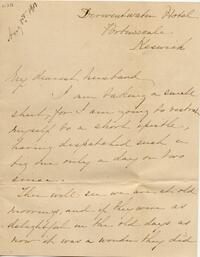 Derwentwater Hotel
Portinscale
Keswick
My dearest husband
I am taking a small
sheet, for I am going to restrict
myself to a short epistle,
having dispatched such a
big one only a day or two
since.
Then will see we are at old
moorings, and if they were as
delightful in the old days as
now it was a wonder they did